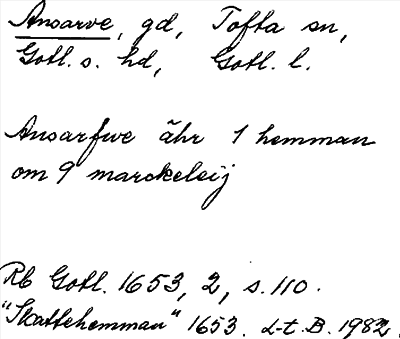 Ansarve, gd, Tofta sn,
Gotl. s. hd, Gotl. l.
Ansarfwe ähr 1 hemman
om 9 marckeleij
Rb Gotl. 1653, 2, s. 110.
"Skattehemman" 1653. L-t. B. 1982.